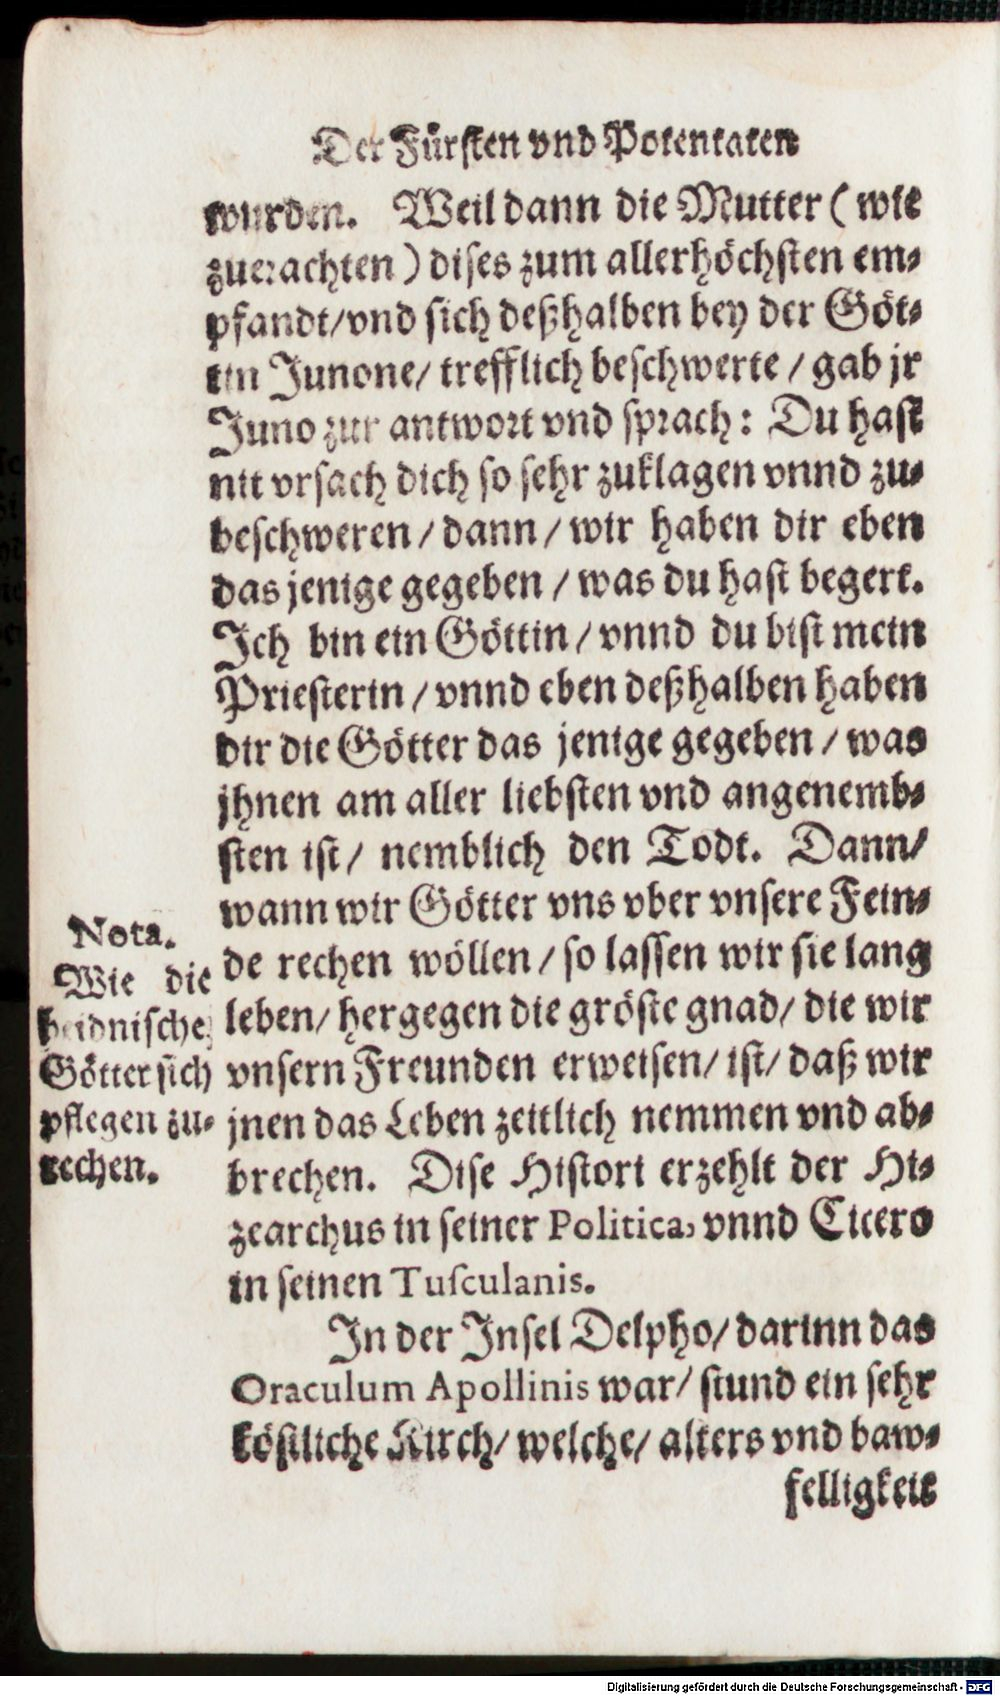 Der Fürsten vnd Potentaten
wurden. Weil dann die Mutter (wie
zuerachten) dises zum allerhöchsten em⸗
pfandt/vnd sich deßhalben bey der Göt⸗
tin Junone/ trefflich beschwerte / gab jr
Juno zur antwort vnd sprach: Du hast
nit vrsach dich so sehr zuklagen vnnd zu⸗
beschweren / dann / wir haben dir eben
das jenige gegeben / was du hast begert.
Ich bin ein Göttin / vnnd du bist mein
Priesterin / vnnd eben deßhalben haben
dir die Götter das jenige gegeben / was
jhnen am aller liebsten vnd angenemb⸗
sten ist/ nemblich den Todt. Dann/
wann wir Götter vns vber vnsere Fein⸗
de rechen wöllen / so lassen wir sie lang
leben/ hergegen die gröste gnad/ die wir
vnsern Freunden erweisen/ ist/ daß wir
jnen das Leben zeitlich nemmen vnd ab⸗
brechen. Dise Histori erzehlt der Hi⸗
zearchus in seiner Politica, vnnd Cicero
in seinen Tusculanis.
Nota.
Wie die
heidnische
Götter sich
pflegen zu⸗
rechen.
In der Insel Delpho/ darinn das
Oraculum Apollinis war/ stund ein sehr
köstliche Kirch/ welche/ alters vnd baw⸗
felligkeit
Digitalisierung gefördert durch die Deutsche Forschungsgemeinschaft - DFG